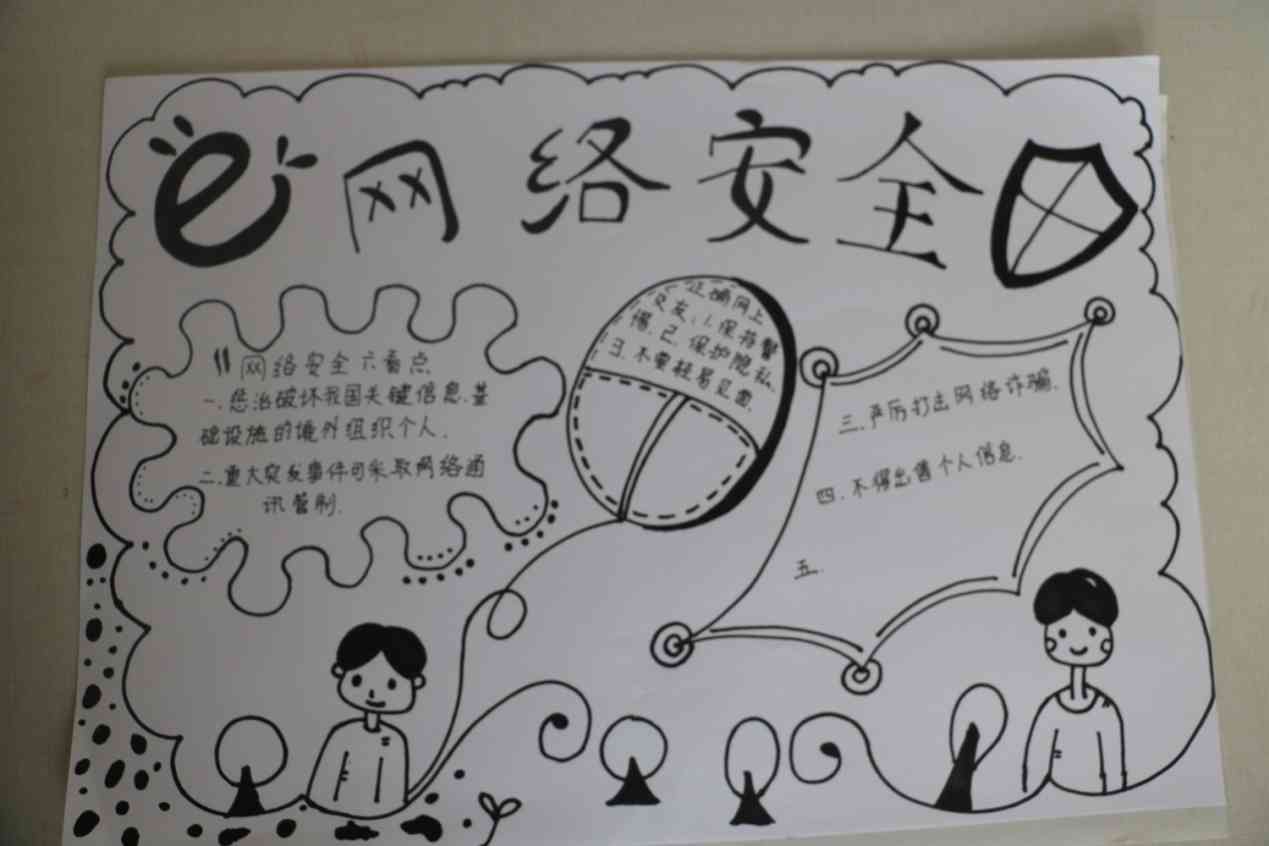 e网络安全
网络安全六看点
一.惩治破坏我国关键信息.基
础设施的境外组织个人.
二.重大突发事件可采取网络通
讯管制.
正确网上
交友:1.保持警
惕.2.保护隐私.
3.不要轻易见面.
三.严厉打击网络诈骗.
四.不得出售个人信息.
五.